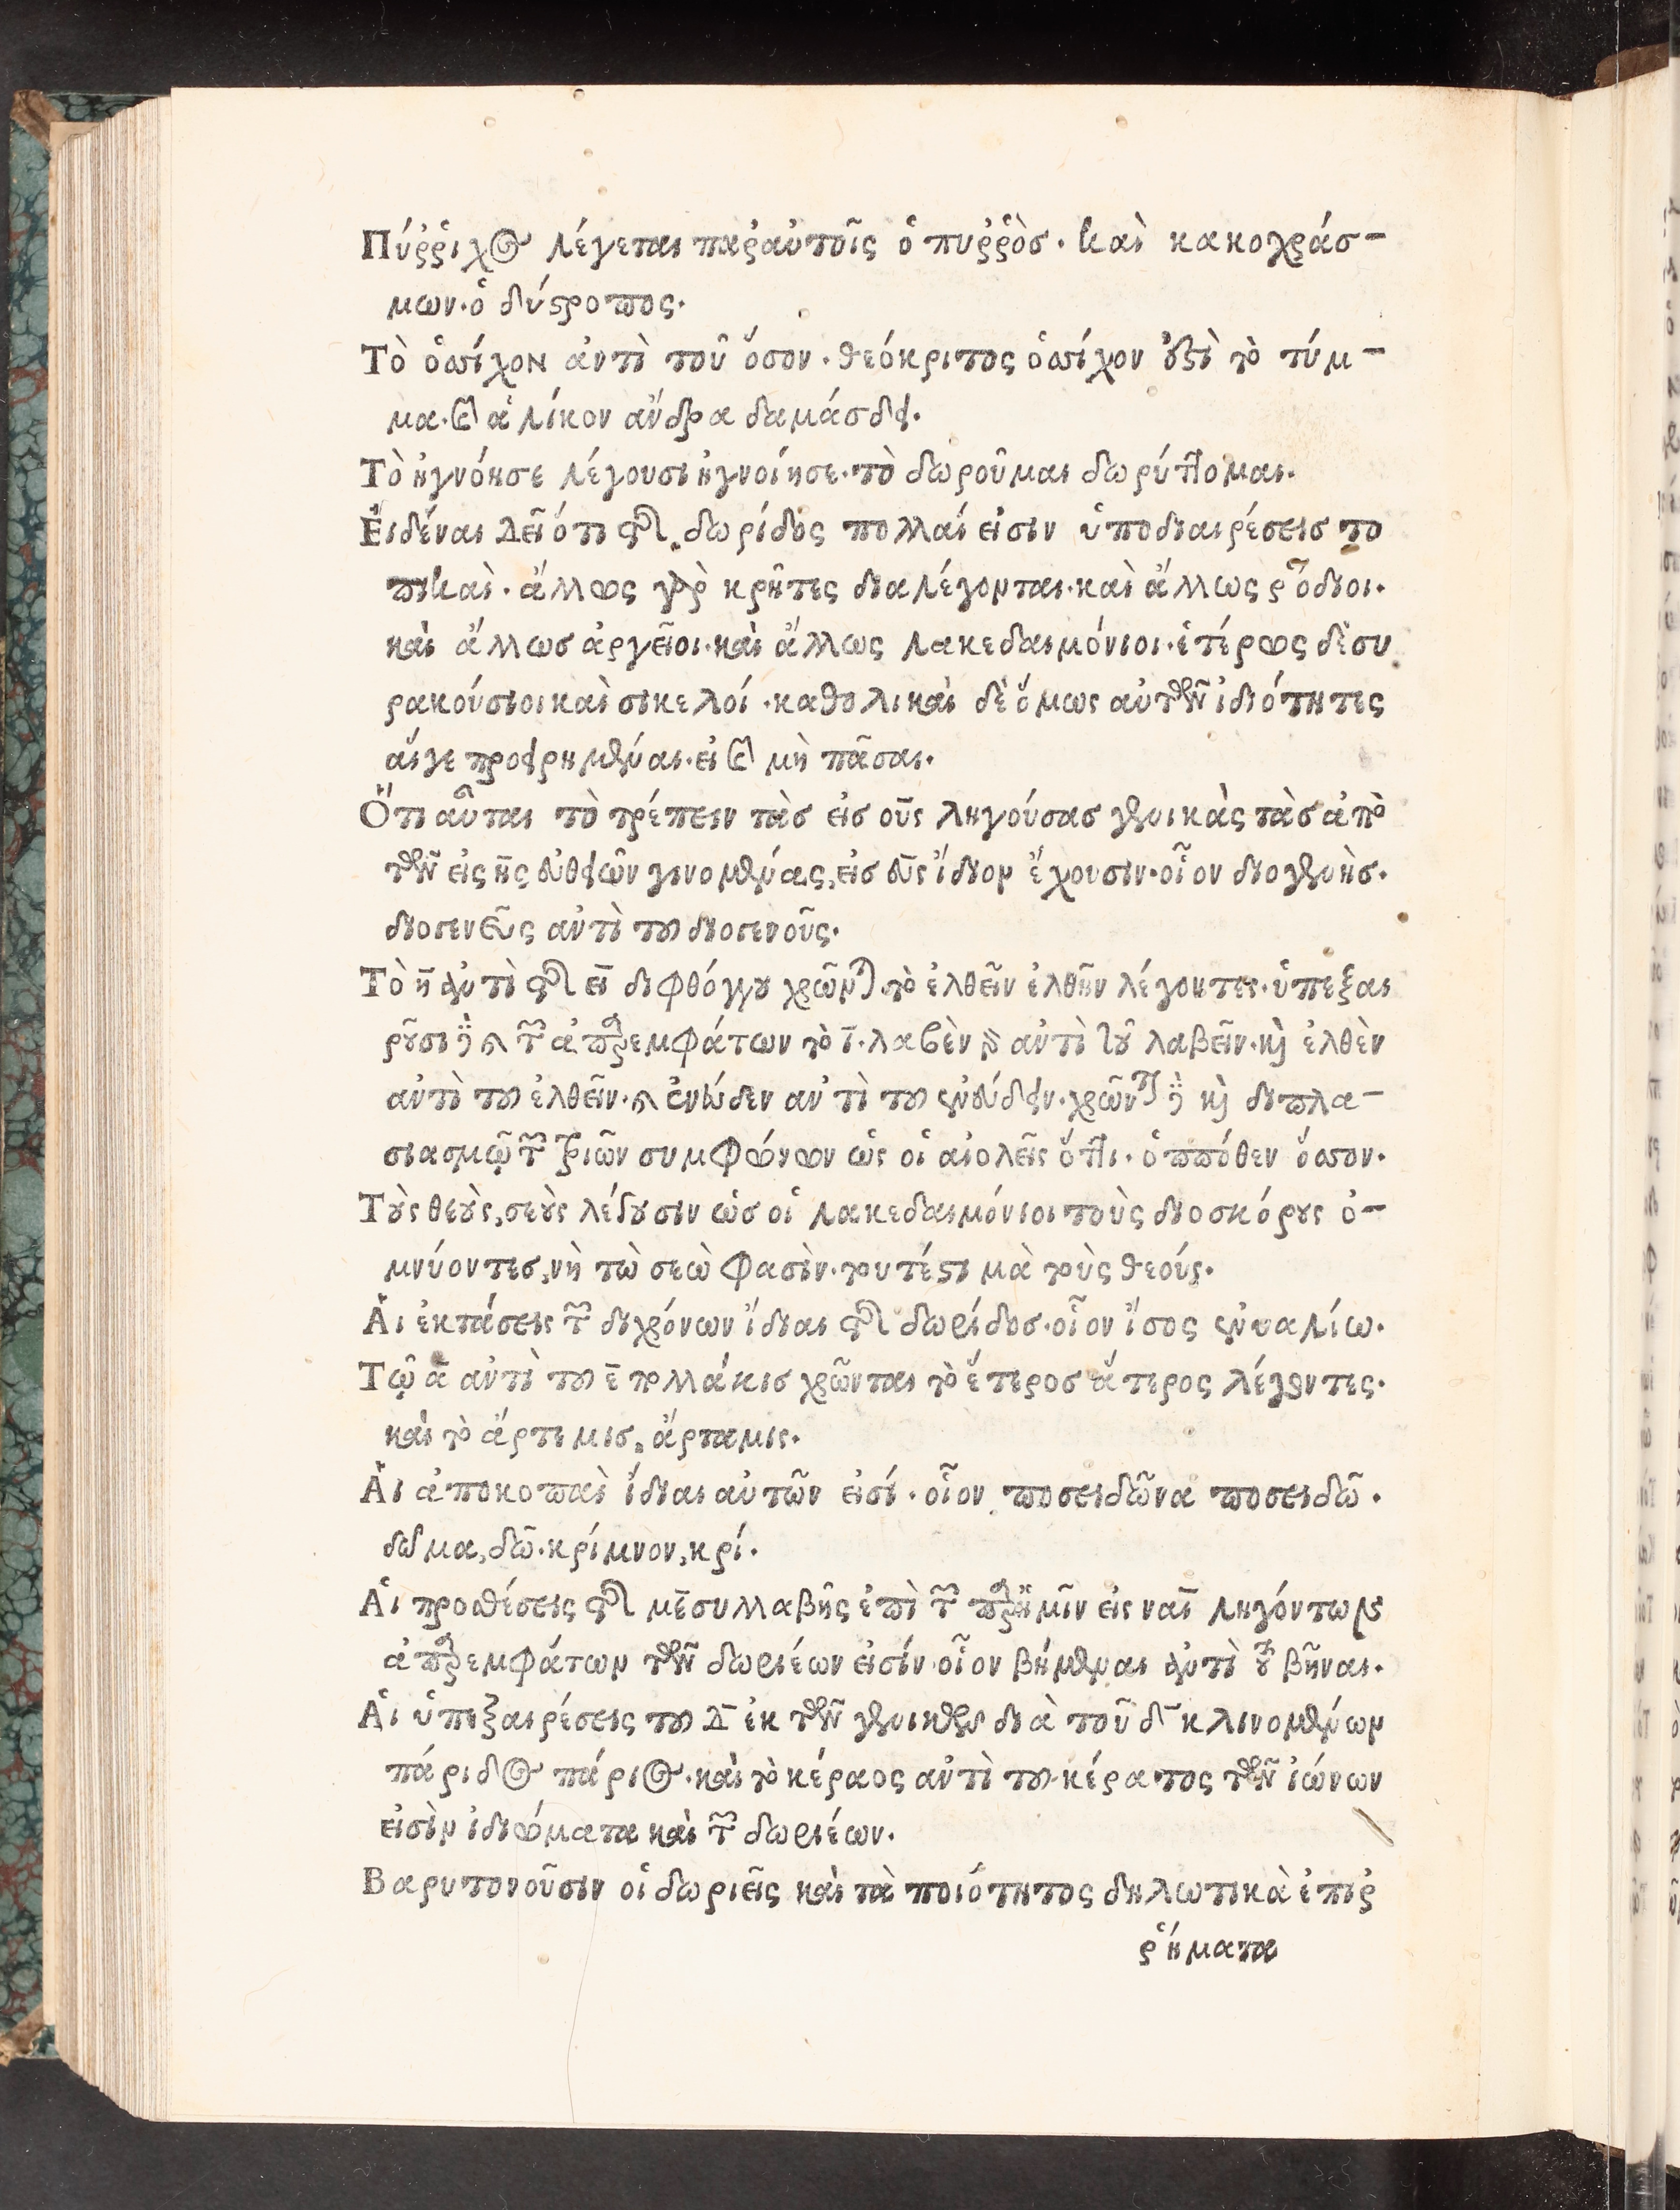 Πύῤῥιχος λέγεται παρ᾽ αὐτοῖς ὁ πυῤῥὸσ. καὶ κακοχράσ-
μων. ὁ δύστροπος.
Τὸ ὁσσίχον ἀντὶ τοῦ ὅσον. θεόκριτος ὁσσίχον ἐστὶ τὸ τύμ-
μα. καὶ ἁλίκον ἄνδρα δαμάσδει.
Τὸ ἠγνόησε λέγουσι ἠγνοίησε. τὸ δωροῦμαι δωρύττομαι.
Ἐιδέναι δεῖ ὅτι τῆς δωρίδος πολλαί εἰσιν ὑποδιαιρέσεισ το
πικαὶ. ἄλλως γὰρ κρῆτες διαλέγονται. καὶ ἄλλως ῥόδιοι.
καὶ ἄλλωσ ἀργεῖοι. καὶ ἄλλως λακεδαιμόνιοι. ἑτέρως δὲ συ
ρακούσιοι καὶ σικελοί. καθολικαὶ δὲ ὅμως αὐτῶν ἰδιότητες
αἵγε προειρημέναι. εἰ καὶ μὴ πᾶσαι.
Ὅτι αὗται τὸ τρέπειν τὰσ εἰσ ους ληγούσασ γενικὰς τὰσ ἀπὸ
τῶν εἰς ης εὐθειῶν γινομένας, εἰσ ευς ἴδιον ἔχουσιν. οἷον διογένησ.
διογενεῦς ἀντὶ του διογενοῦς.
Τὸ η ἀντὶ τῆς ει διφθόγγου χρῶνται. τὸ ἐλθεῖν ἐλθῆν λέγοντες. ὑπεξαι
ροῦσι δὲ καὶ τῶν ἀπαρεμφάτων τὸ ι. λαβὲν γὰρ ἀντὶ τοῦ λαβεῖν. καὶ ἐλθὲν
ἀντὶ του ἐλθεῖν. καὶ ἐνεύδεν ἀντὶ του ἐνεύδειν. χρῶνται δὲ καὶ διπλα-
σιασμῷ τῶν τριῶν συμφώνων ὡς οἱ αἰολεῖς ὅττι. ὁππόθεν ὅσσον.
Τοὺς θεοὺς, σεοὺς λέγουσιν ὡσ οἱ λακεδαιμόνιοι τοὺς διοσκόρους ὀ-
μνύοντεσ, νὴ τὼ σεὼ φασὶν. τουτέστι μὰ τοὺς θεούς.
Ἁι ἐκτάσεις τῶν διχρόνων ἴδιαι τῆς δωρίδοσ. οἷον ἴσος ἐνυαλίω.
Τῷ α ἀντὶ του ε πολλάκισ χρῶνται τὸ ἕτεροσ ἅτερος λέγοντες.
καὶ τὸ ἄρτεμισ, ἄρταμις.
Ἁι ἀποκοπαὶ ἴδιαι αὐτῶν εἰσί. οἷον ποσειδῶνα ποσειδῶ.
δῶμα, δῶ. κρίμνον, κρί.
Ἁι προσθέσεις τῆς με συλλαβῆς ἐπὶ τῶν παρ᾽ ἡμῖν εἰς ναι ληγόντων
ἀπαρεμφάτων τῶν δωριέων εἰσίν. οἷον βήμεναι ἀντὶ τοῦ βῆναι.
Ἁι ὑπεξαιρέσεις του Δ ἐκ τῶν γενικῶν διὰ τοῦ δ κλινομένων
πάριδος πάριος. καὶ τὸ κέραος ἀντὶ του κέρατος τῶν ἰώνων
εἰσὶν ἰδιώματα καὶ τῶν δωριέων.
Βαρυτονοῦσιν οἱ δωριεῖς καὶ τὰ ποιότητος δηλωτικὰ ἐπιῤ
ῥήματα